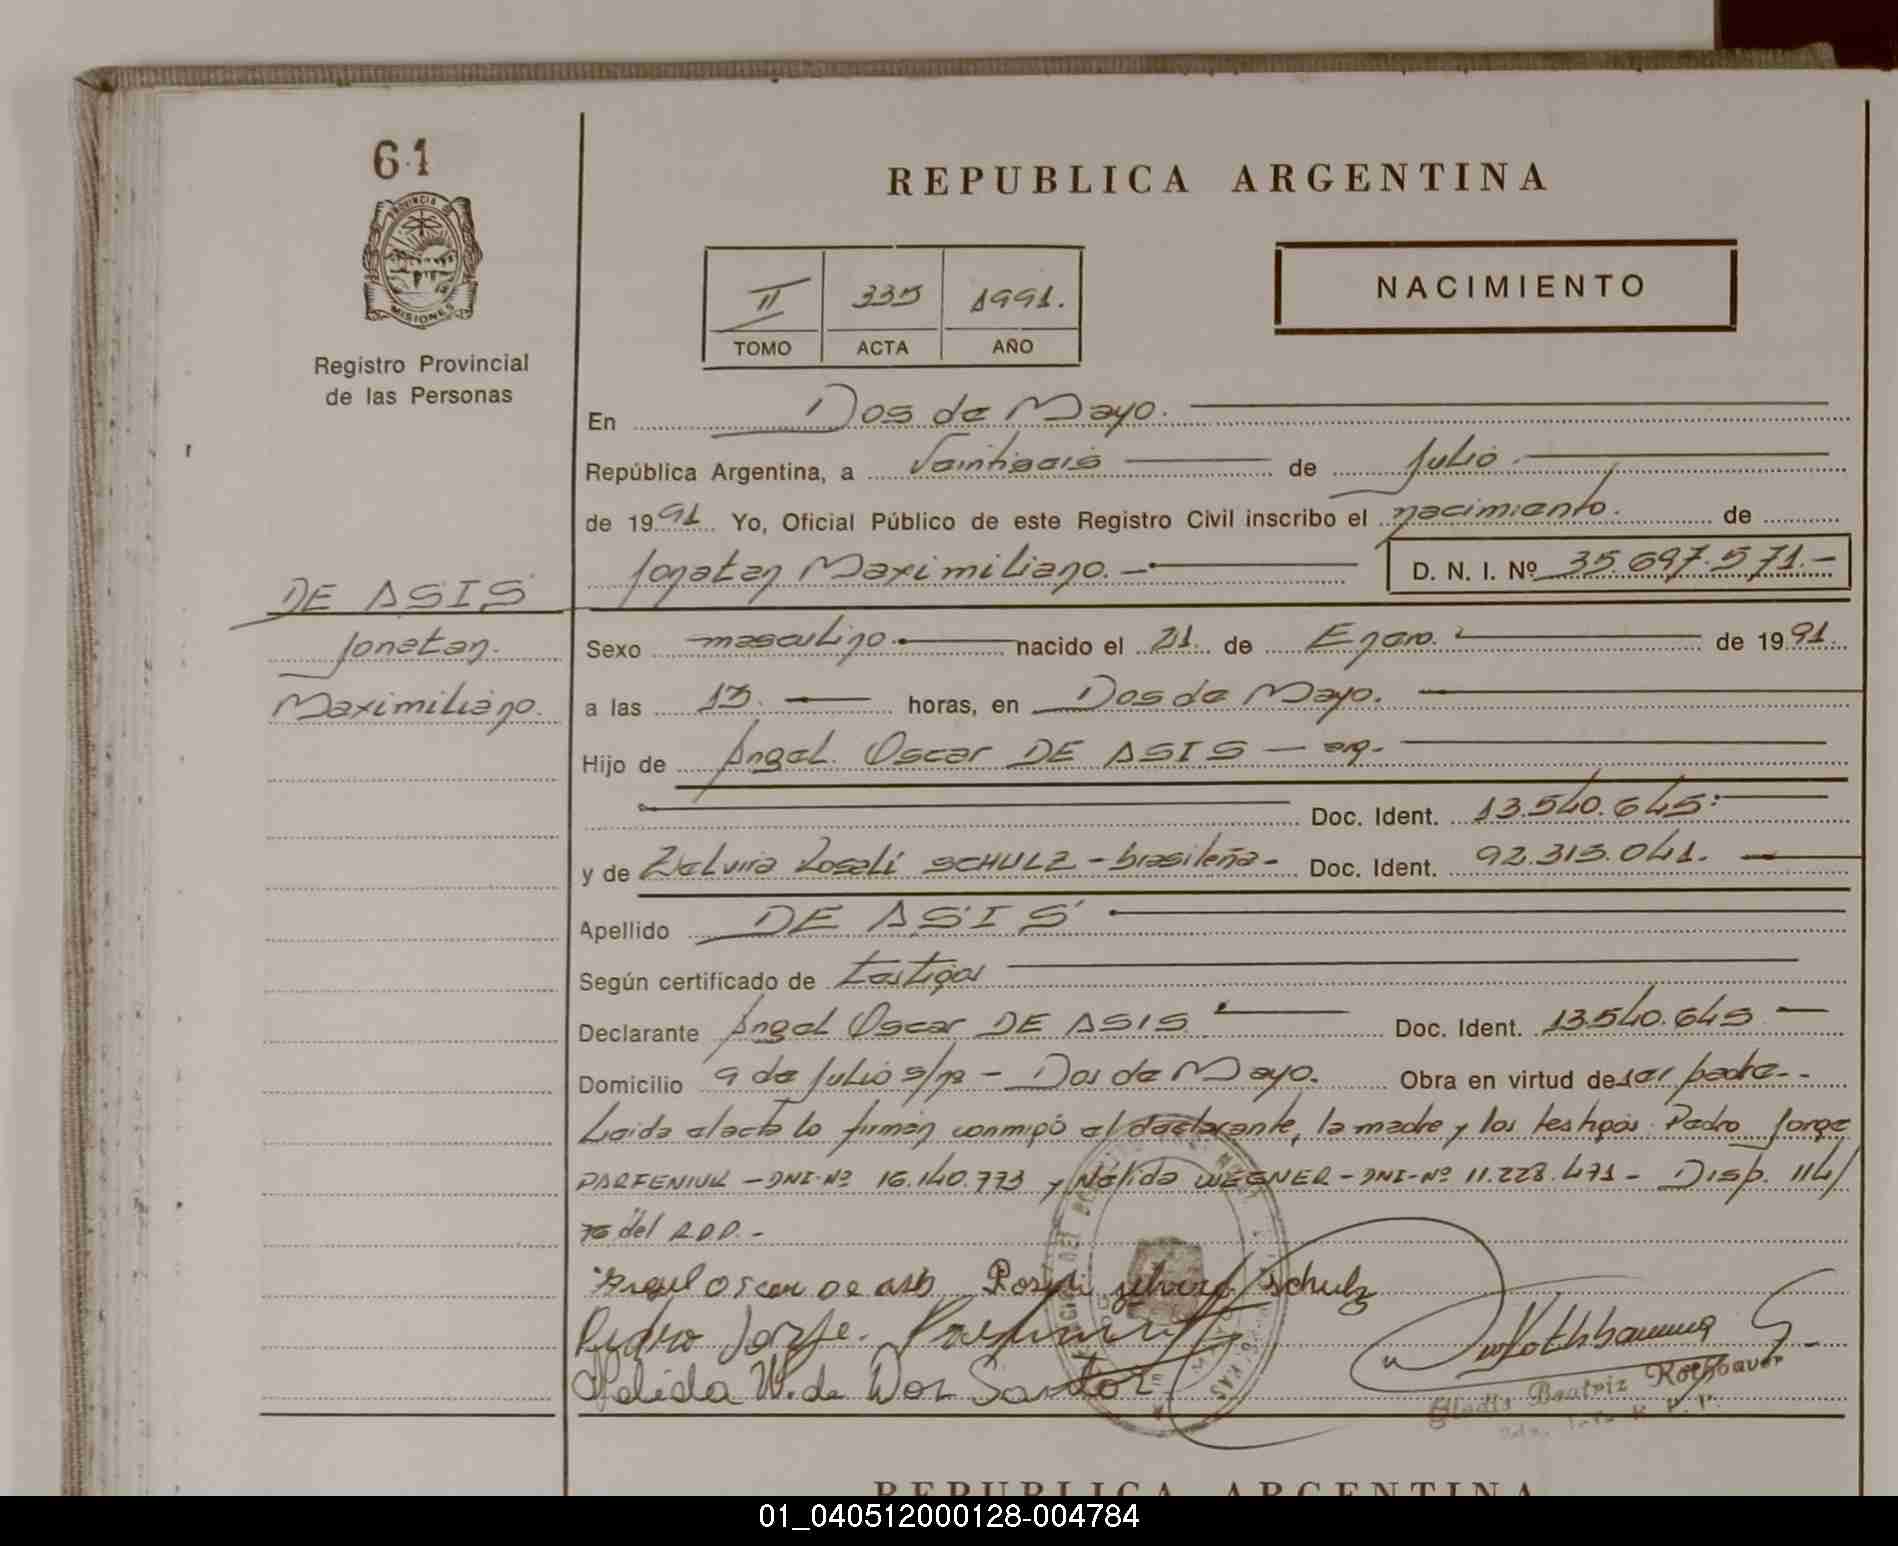 61
PROVINCIA DE
MISIONES
Registro Provincial
de las Personas
DE ASIS
Jonatan
Maximiliano.
REPUBLICA ARGENTINA
II 335 1991.
TOMO ACTA AÑO
NACIMIENTO
En Dos de Mayo.
República Argentina, a Veintiseis de Julio.
de 1991 Yo, Oficial Público de este Registro Civil inscribo el nacimiento. de
Jonatan Maximiliano. D. N. I. Nº 35.697.571.-
Sexo masculino. nacido el 21. de Enero. de 1991.
a las 13. horas, en Dos de Mayo.
Hijo de Angel Oscar DE ASIS - arg.
Doc. Ident. 13.540.645.
y de Rosali SCHULZ - brasileña - Doc. Ident. 92.315.041.
Apellido DE ASIS
Según certificado de testigos
Declarante Angel Oscar DE ASIS Doc. Ident. 13.540.645
Domicilio 9 de Julio s/nº - Dos de Mayo. Obra en virtud de ser padre.-
Leida el acta lo firman conmigo el declarante, la madre y los testigos: Pedro Jorge
PARFENIUK - DNI-Nº 16.140.773 y Nélida WEGNER - DNI-Nº 11.228.471 - Disp. 114/
76 del R.P.P. -
Angel Oscar De asis Rosali Schulz
Pedro Jorge
Nelida W. de Dos Santos
Rothbauer
Gladis Beatriz Rothbauer
REPUBLICA ARGENTINA
01_040512000128-004784